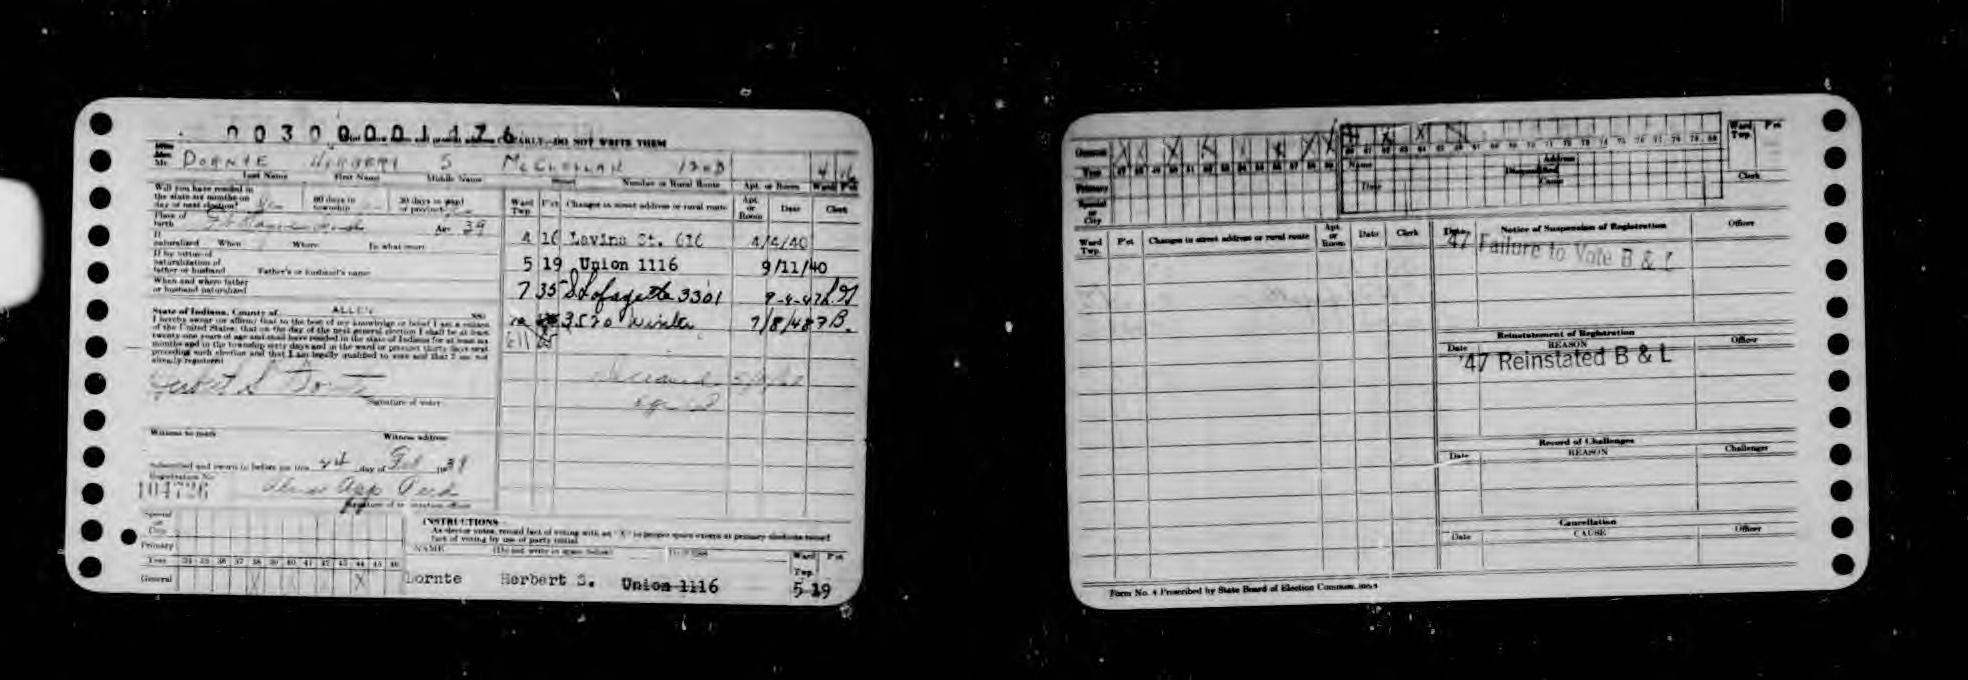 00300001476
CLEARLY—DO NOT WRITE THEM
Mr. DORNTE HERBERT S McCLELLAN 1303 4 16
Last Name First Name Middle Name Street Number or Rural Route Apt. or Room Ward Pct
Will you have resided in
the state six months on
day of next election? Yes
60 days in
township
30 days in ward
or precinct
Place of
birth
Age 39
If
naturalized When Where In what court
If by virtue of
naturalization of
father or husband Father's or husband's name
When and where father
or husband naturalized
State of Indiana, County of ALLEN SS:
I hereby swear (or affirm) that to the best of my knowledge or belief I am a citizen
of the United States; that on the day of the next general election I shall be at least
twenty-one years of age and shall have resided in the state of Indiana for at least six
months and in the township sixty days and in the ward or precinct thirty days next
preceding such election and that I am legally qualified to vote and that I am not
already registered
Herbert S Dornte
Signature of voter
Witness to mark Witness address
Subscribed and sworn to before me this 24 day of Feb 1939
Registration No.
104726
Ward
Twp. P'ct Changes in street address or rural route Apt.
or
Room Date Clerk
4 16 Lavina St. 616 4/4/40
5 19 Union 1116 9/11/40
7 35 S Lafayette 3301 9-4-47
3520 Winter 7/8/48 B.
Deceased
Special
or
City
Primary
Year 34 35 36 37 38 39 40 41 42 43 44 45 46
General X X X
INSTRUCTIONS
As elector votes, record fact of voting with an "X" in proper space except at primary elections record
fact of voting by use of party initial
NAME (Do not write in space below) Ward
Twp. P'ct
Dornte Herbert S. Union 1116 5 19
General
Year 47 48 49 50 51 52 53 54 55 56 57 58 59 60 61 62 63 64 65 66 67 68 69 70 71 72 73 74 75 76 77 78 79 80
Primary
Special
or
City
Name Address
Disqualified
Date Cause
Ward
Twp. P'ct
Clerk
Ward
Twp. P'ct Changes in street address or rural route Apt.
or
Room Date Clerk
Date Notice of Suspension of Registration Officer
'47 Failure to Vote B & L
Reinstatement of Registration
Date REASON Officer
'47 Reinstated B & L
Record of Challenges
Date REASON Challenger
Cancellation
Date CAUSE Officer
Form No. 4 Prescribed by State Board of Election Commrs.